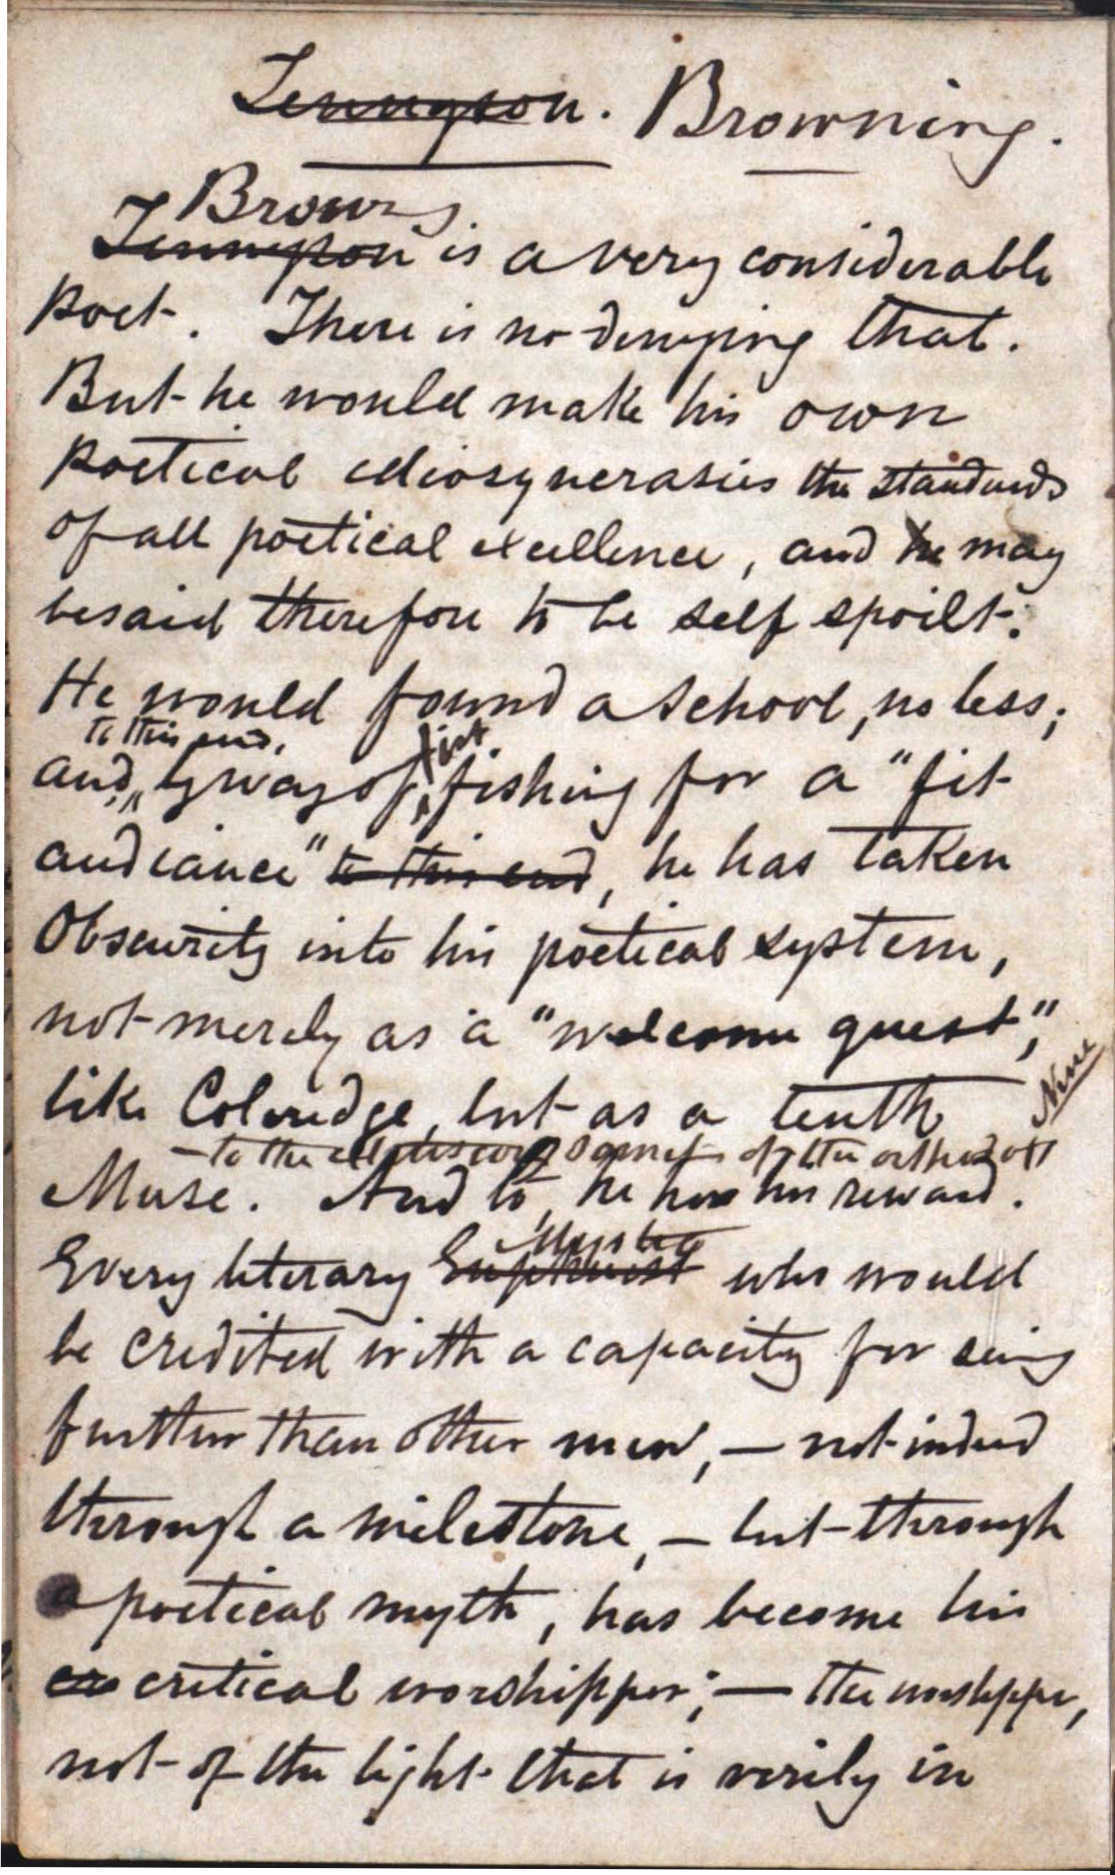 Tennyson. Browning.
Browng
Tennyson is a very considerable
poet. There is no denying that.
But he would make his own
poetical idiosyncrasies the standards
of all poetical excellence, and he may
be said therefore to be self spoilt.
He would found a school, no less;
to this end,
and, by way of first fishing for a "fit
audiance" to this end, he has taken
Obscurity into his poetical system,
not merely as a "welcome guest",
like Coleridge, but as a tenth
Nine
- to the of the orthodox
Muse. And lo, he has his reward.
Every literary Euphuist who would
be credited with a capacity for seeing
further than other men, — not indeed
through a milestone, — but through
a poetical myth, has become his
critical worshipper; — the worshipper,
not of the light that is verily in